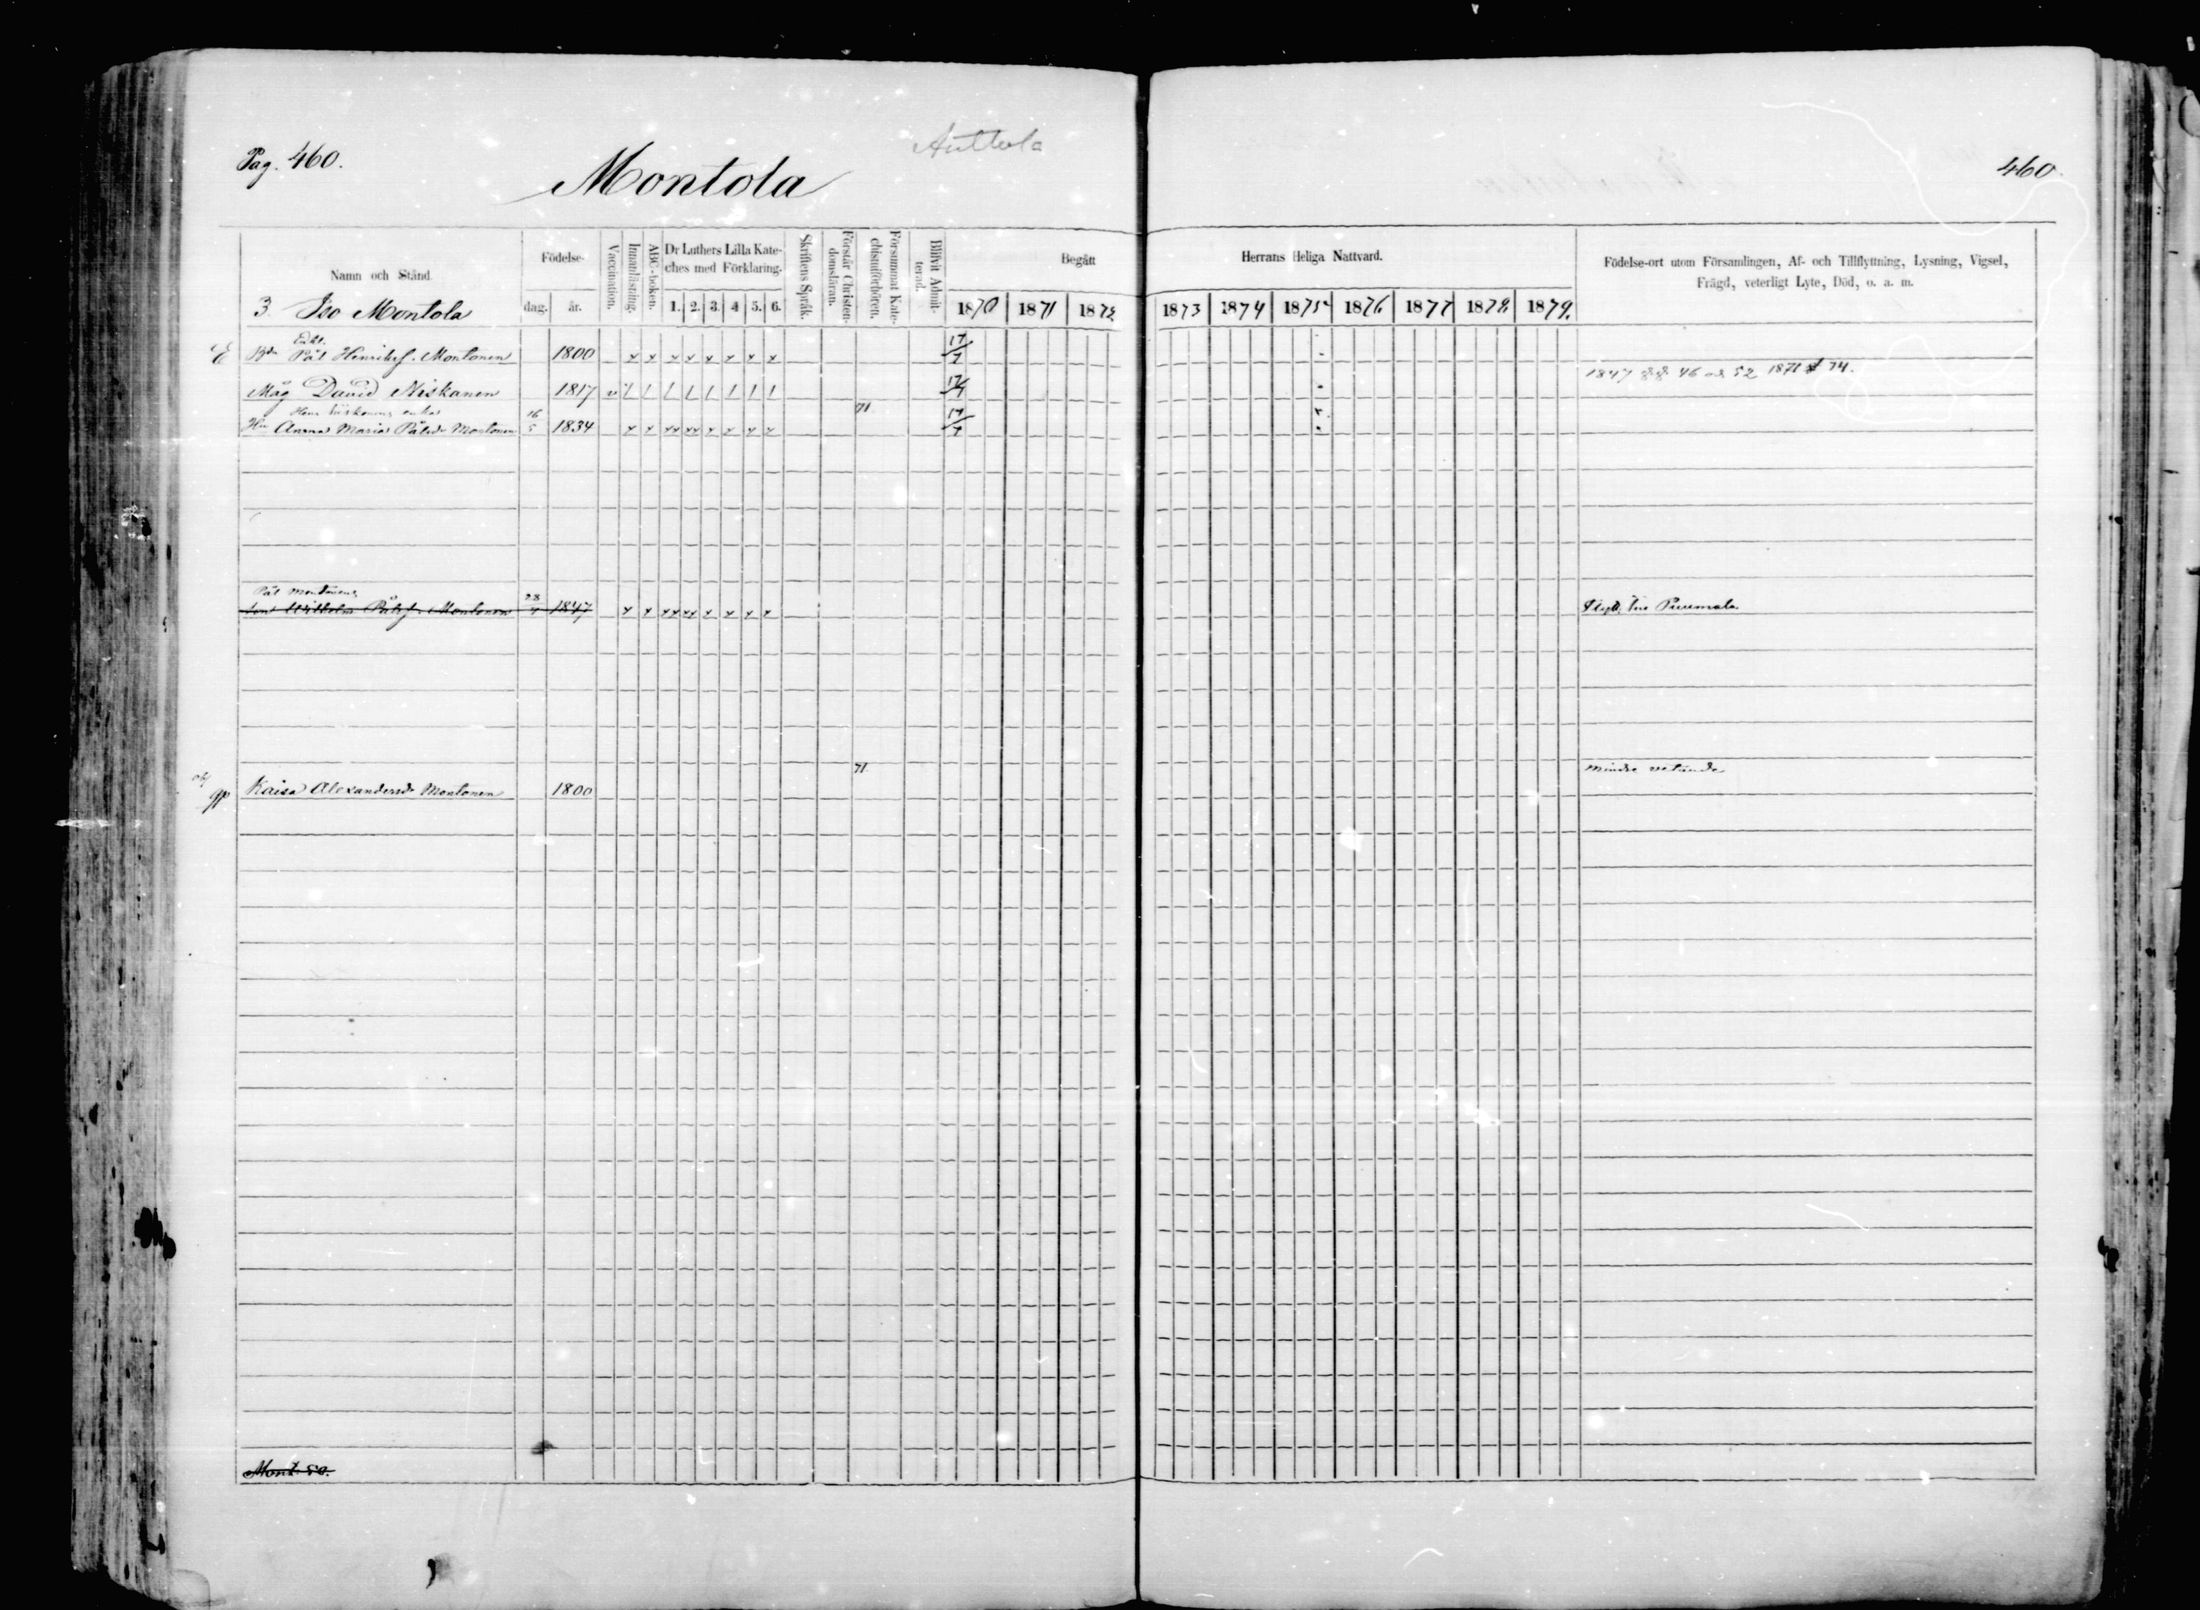 Pag. 460.
Montola
Anttola
460
Namn och Stånd.
Födelse-
dag. år.
Vaccination.
Innanläsning.
ABC-boken.
Dr Luthers Lilla Kate-
ches med Förklaring.
1. 2. 3. 4 5. 6.
Skriftens Språk.
Förstår Christen-
domsläran.
Försummat Kate-
chismiförhören.
Blifvit Admit-
terad.
Begått
Herrans Heliga Nattvard.
1870 1871 1872 1873 1874 1875 1876 1877 1878 1879.
Födelse-ort utom Församlingen, Af- och Tillflyttning, Lysning, Vigsel,
Frägd, veterligt Lyte, Död, o. a. m.
3 Iso Montola
Enkl.
Bde Pål Henriksf. Montonen 1800 x x x x x x x x 17/7
1847 §§ 46 och 52 1871 74.
Måg David Niskanen 1817 v 17/7
enka 71
Hu Anna Maria Pålsdr Montonen 16/5 1834 x x xx xx x x x x 17/7
Pål Montonens
son Wilhelm Pålsf. Montonen 28/4 1847 x x xx xx x x x x Flytt. till Puumala
71. mindre vetande
Kaisa Alexandersdr Montonen 1800
Mont. 50.